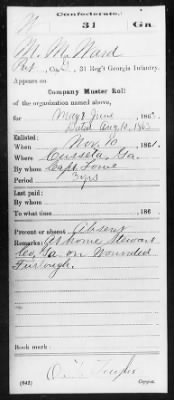 Confederate.
W 31 Ga
M. M. Ward
Co. , 31 Reg't Georgia Infantry.
Appears on
Company Muster Roll
of the organization named above,
for May & June , 186
Dated Aug 10, 1863
Enlisted:
When Nov 10 , 1861.
Where Cusseta, Ga.
By whom Capt
Period 3 yrs
Last paid:
By whom
To what time , 186 .
Present or absent Absent
Remarks: At home Stewart
Co, Ga. on Wounded
Furlough.
Book mark:
(642) Copyist.